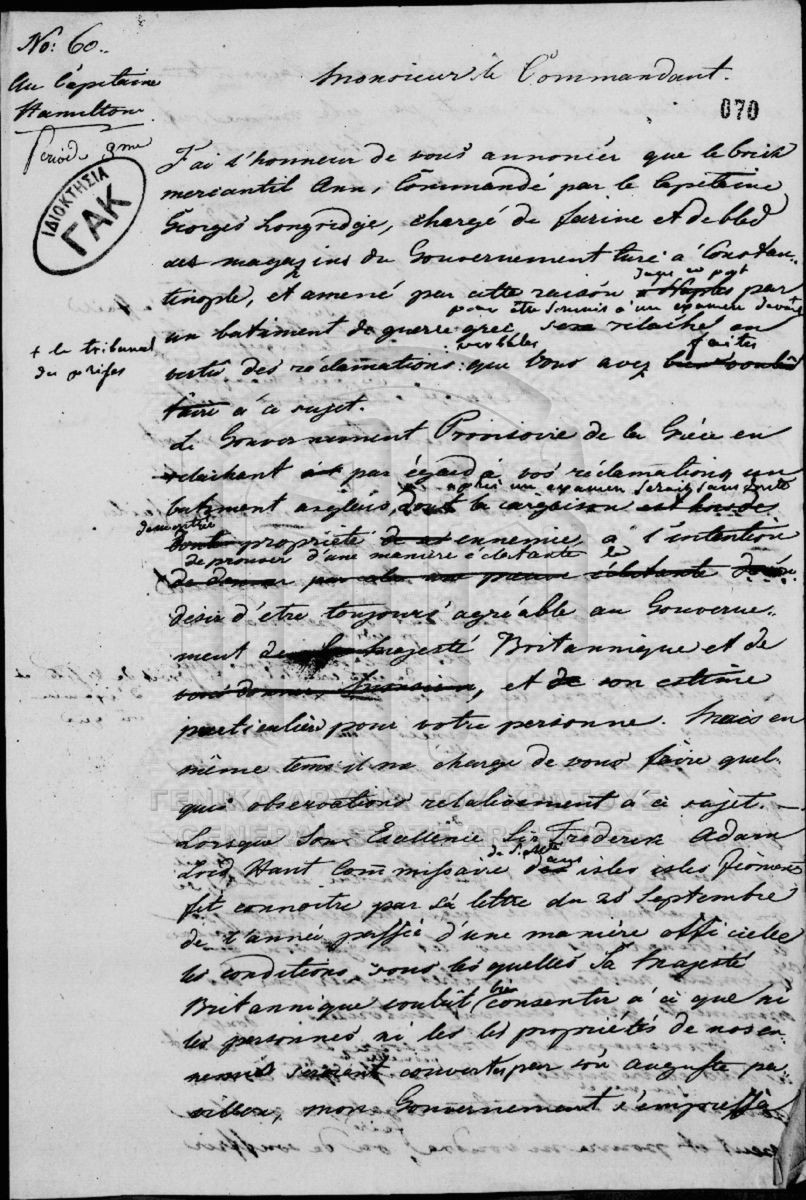 No: 60.
Au Capitaine
Hamilton
Période 3me
Monsieur le Commandant.
070
ΙΔΙΟΚΤΗΣΙΑ
ΓΑΚ
J'ai l'honneur de vous annoncer que le brick
mercantil Ann, Commandé par le Capitaine
Georges Longridge, chargé de farine et de bled
des magazins du Gouvernement turc à Constan-
tinople, et amené par cette raison à Naples par
pour être soumis à un examen devant
+ le tribunal
des prises
un batiment de guerre grec, sera relaché en
verbales
faites
vertu des réclamations que Vous avez bien voulu
faire à ce sujet.
Le Gouvernement Provisoire de la Grèce en
relachant par égard à vos réclamations un
après un examen serait sans doute
batiment anglais, dont la cargaison est hors de
démontrée
doute propriété ennemie a l'intention
de prouver d'une manière éclatante le
de donner par une preuve éclatante
désir d'être toujours agréable au Gouverne-
ment de Sa Majesté Britannique et de
vous donner, Monsieur, et de son estime
particulière pour votre personne. Mais en
même tems il me charge de vous faire quel-
ques observations relativement à ce sujet.
Lorsque Son Excellence Sir Frederik Adam
Lord Haut Commissaire des isles isles Ioniennes
fit connoitre par sa lettre du 28 Septembre
de l'année passée d'une manière officielle
les conditions sous lesquelles Sa Majesté
bien
Britannique voulût consentir à ce que ni
les personnes ni les les propriétés de nos en-
nemis seraient couvertes par son auguste pa-
villon, mon Gouvernement s'empressa
ΓΕΝΙΚΑ ΑΡΧΕΙΑ ΤΟΥ ΚΡΑΤΟΥΣ